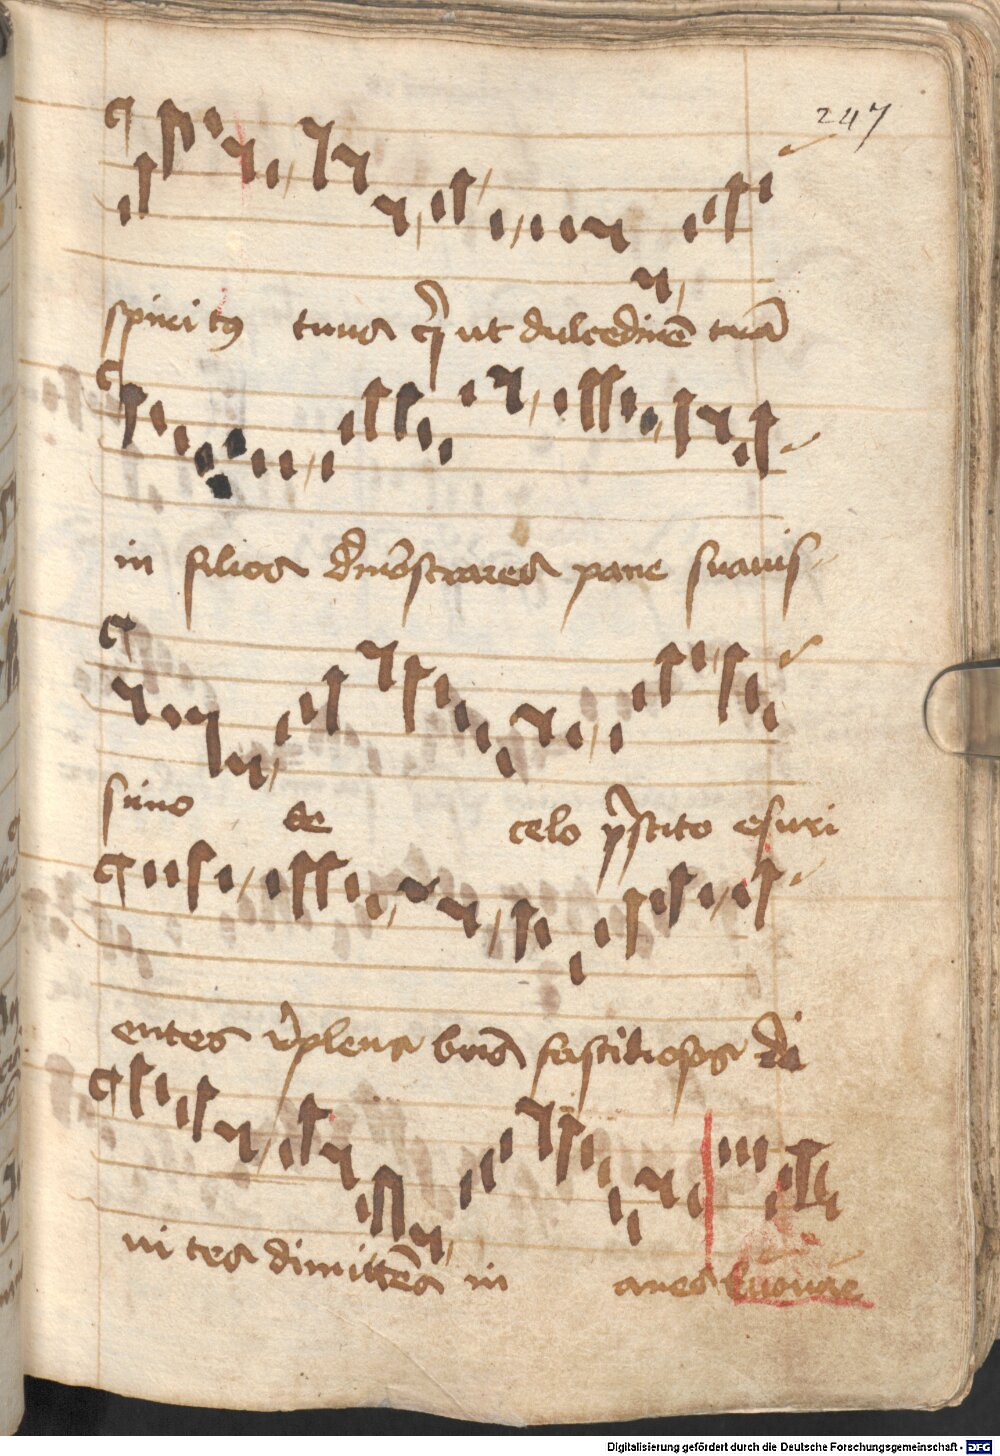 247
spiritꝰ tuus q̇ ut dulcedinē tuā
in filios dmōstrares pane suauis
simo de celo p̄stito esuri
entes reples bonis fastidiosos di
ui tes dimittēs in anes Euouae
Digitalisierung gefördert durch die Deutsche Forschungsgemeinschaft - DFG